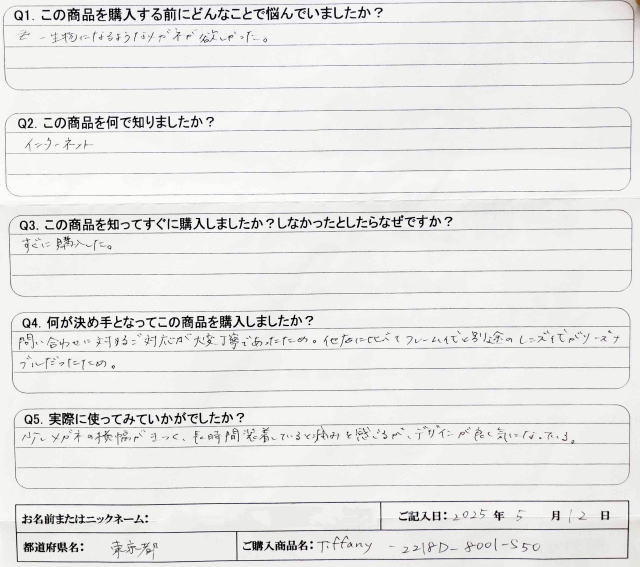 Q1. この商品を購入する前にどんなことで悩んでいましたか？
一生物になるようなメガネが欲しかった。
Q2. この商品を何で知りましたか？
インターネット
Q3. この商品を知ってすぐに購入しましたか？しなかったとしたらなぜですか？
すぐに購入した。
Q4. 何が決め手となってこの商品を購入しましたか？
問い合わせに対するご対応が大変丁寧であったため。他店に比べてフレーム代と別途のレンズ代がリーズナ
ブルだったため。
Q5. 実際に使ってみていかがでしたか？
少しメガネの横幅がきつく、長時間装着していると痛みを感じるが、デザインが良く気に入っている。
お名前またはニックネーム： ご記入日：2025年 5 月 12 日
都道府県名： 東京都 ご購入商品名：Tiffany - 2218D-8001-S50